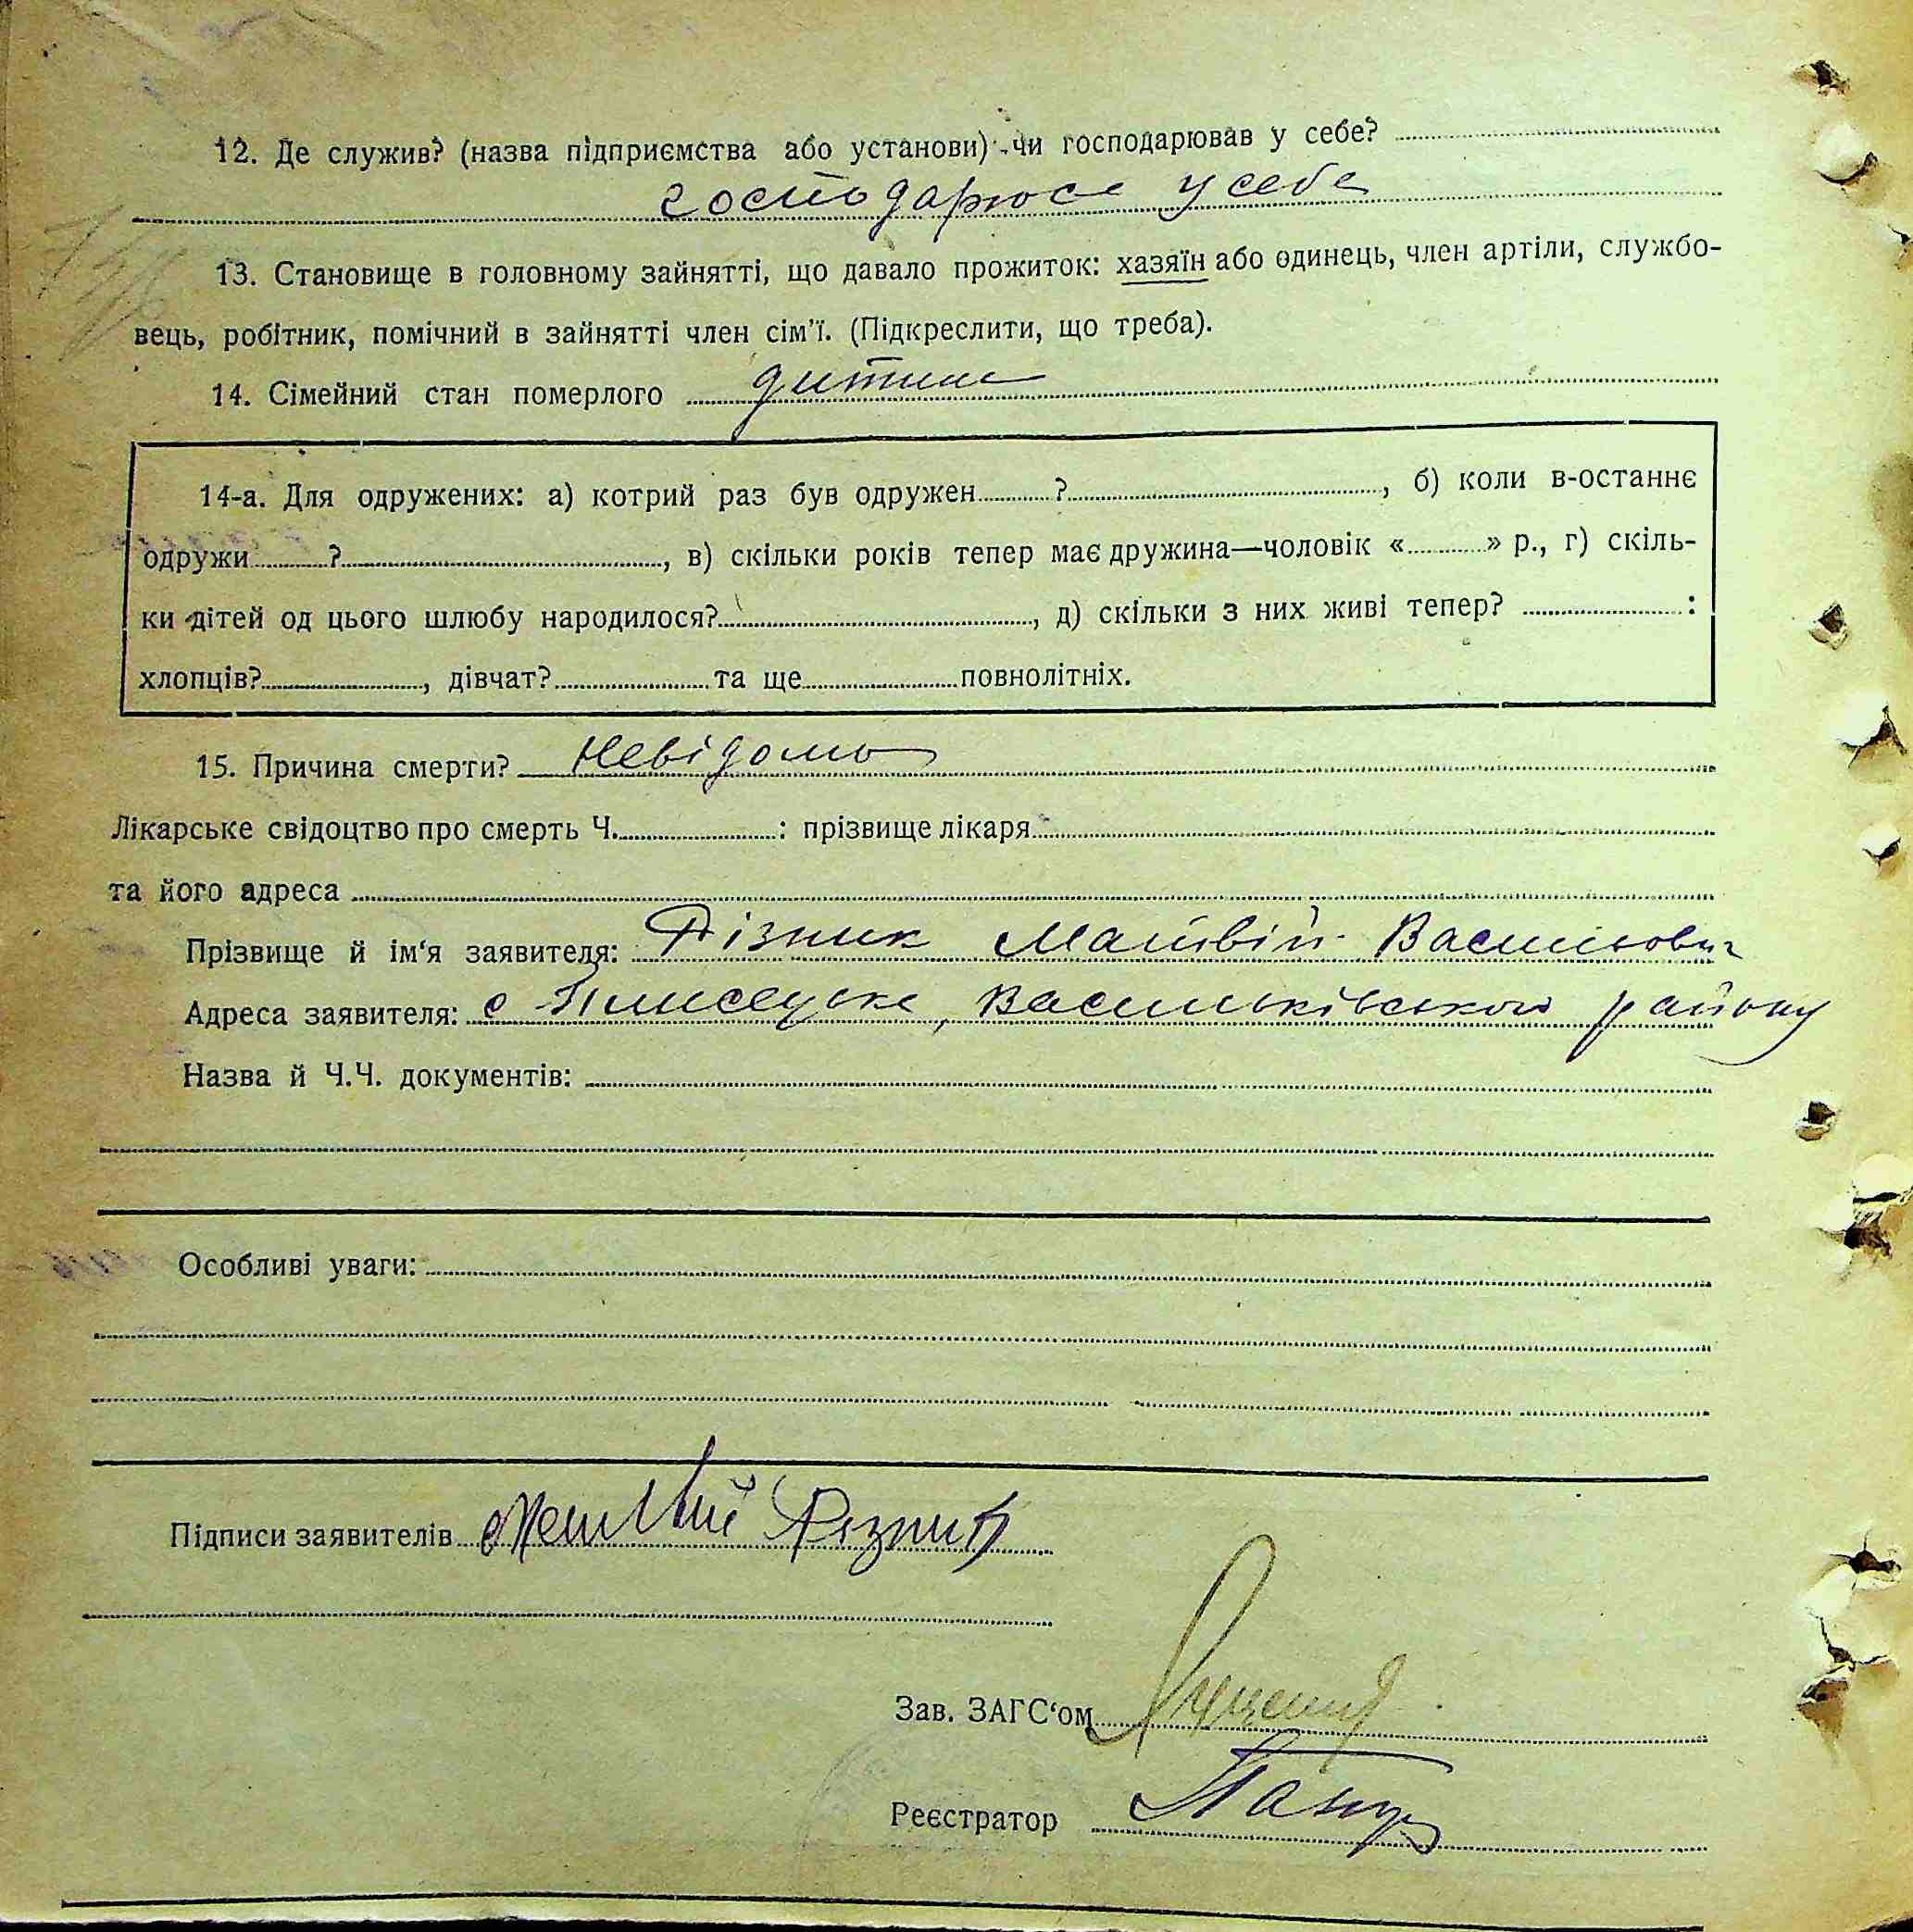 12. Де служив? (назва підприємства або установи) чи господарював у себе?
господарює у себе
13. Становище в головному зайнятті, що давало прожиток: хазяїн або одинець, член артіли, службо-
вець, робітник, помічний в зайнятті член сім'ї. (Підкреслити, що треба).
14. Сімейний стан померлого дитина
14-а. Для одружених: а) котрий раз був одружен ? , б) коли в-останнє
одружи ? , в) скільки років тепер має дружина—чоловік « » р., г) скіль-
ки дітей од цього шлюбу народилося? , д) скільки з них живі тепер? :
хлопців? , дівчат? та ще повнолітніх.
15. Причина смерти? Невідомо
Лікарське свідоцтво про смерть Ч. : прізвище лікаря
та його адреса
Прізвище й ім'я заявителя: Різник Матвій Васильович
Адреса заявителя: с Плисецьке, Васильківського району
Назва й Ч.Ч. документів:
Особливі уваги:
Підписи заявителів Матвій Різник
Зав. ЗАГС'ом
Реєстратор